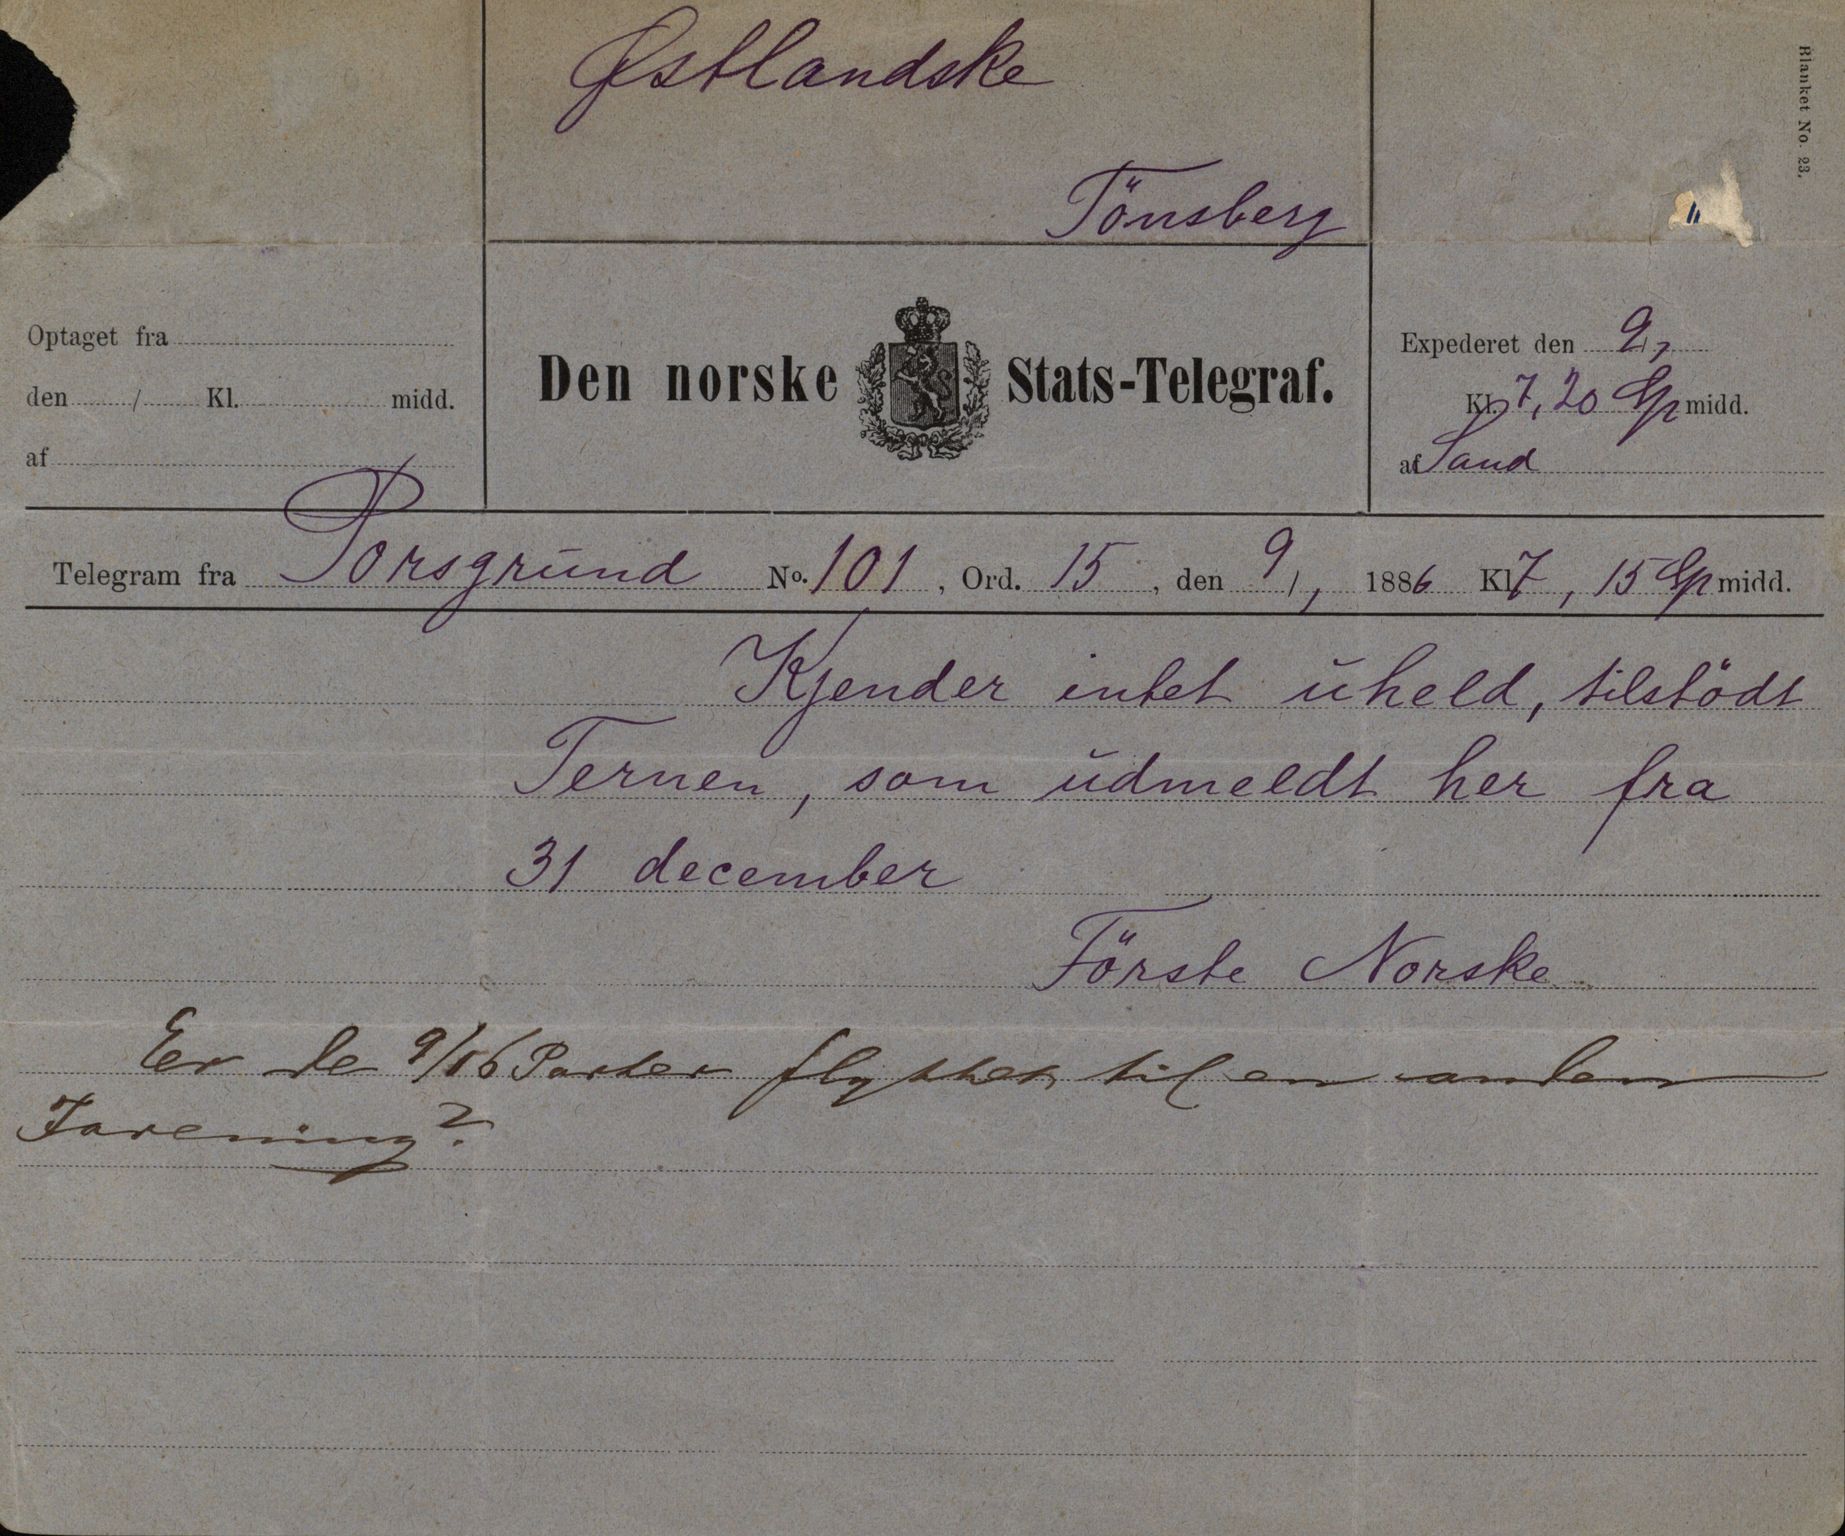 Blanket No. 23.
Østlandske
Tönsberg
Optaget fra
den / Kl. midd.
af
Den norske Stats-Telegraf.
Expederet den 9/1
Kl. 7,20 Ep midd.
af Sand
Telegram fra Porsgrund No. 101, Ord. 15, den 9/1 1886 Kl 7,15 Ep midd.
Kjender intet uheld, tilstödt
Ternen, som udmeldt her fra
31 december
Förste Norske
Er de 9/16 Parter flyttet til en anden
Forening?